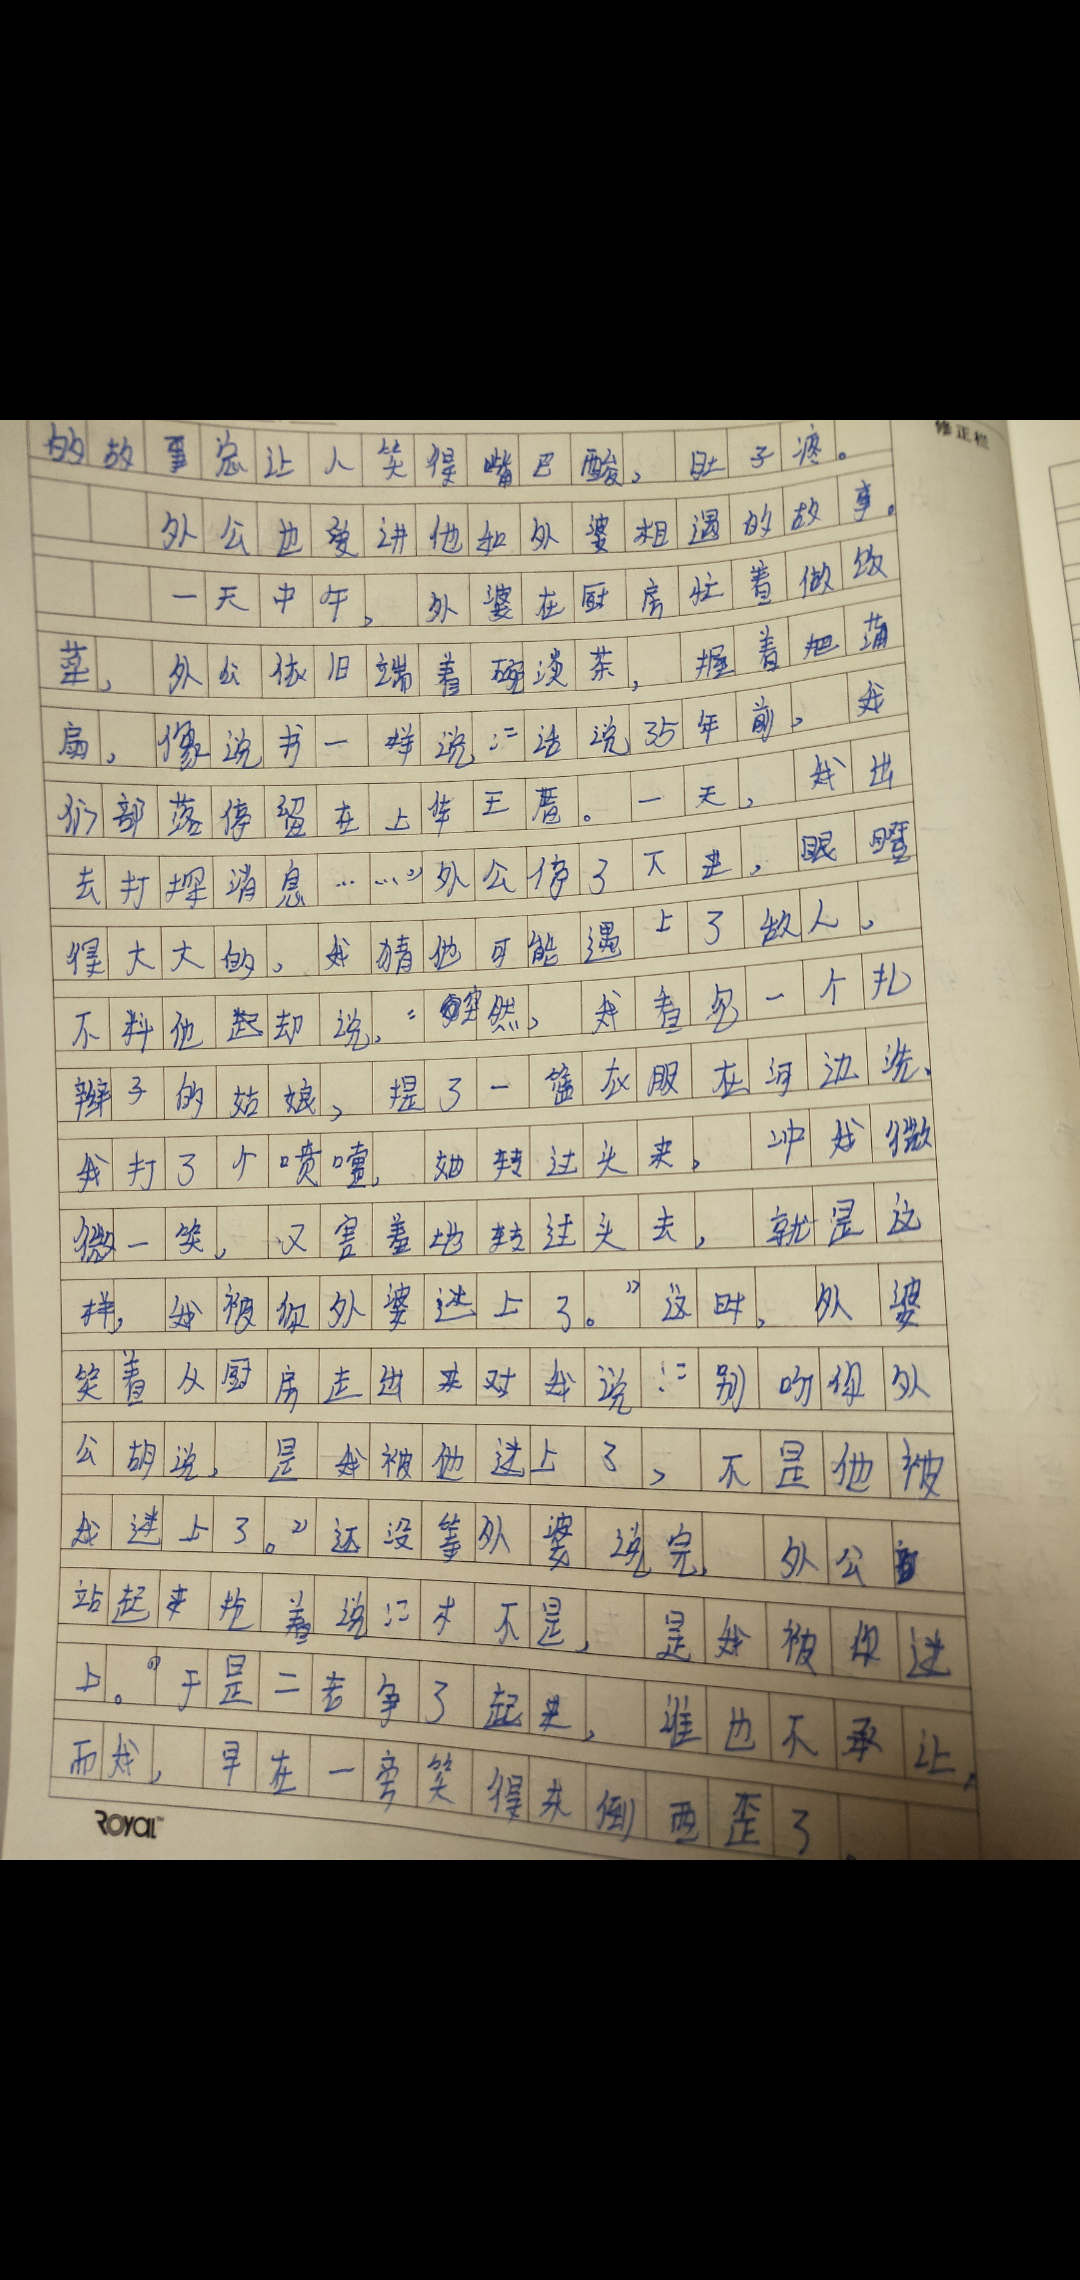 修正栏
的故事总让人笑得嘴巴酸，肚子疼。
外公也爱讲他和外婆相遇的故事。
一天中午，外婆在厨房忙着做饭
菜，外公依旧端着碗淡茶，握着把蒲
扇，像说书一样说：“话说35年前，我
们部落停留在上华王厝。一天，我出
去打探消息……”外公停了下来，眼瞪
得大大的，我猜他可能遇上了敌人，
不料他起却说：“突然，我看见一个扎
辫子的姑娘，提了一篮衣服在河边洗，
我打了个喷嚏，她转过头来，冲我微
微一笑，又害羞地转过头去，就是这
样，我被你外婆迷上了。”这时，外婆
笑着从厨房走出来对我说：“别听你外
公胡说，是我被他迷上了，不是他被
我迷上了。”还没等外婆说完，外公
站起来抢着说：“才不是，是我被你迷
上。”于是二老争了起来，谁也不承让，
而我，早在一旁笑得东倒西歪了。
ROYAL™